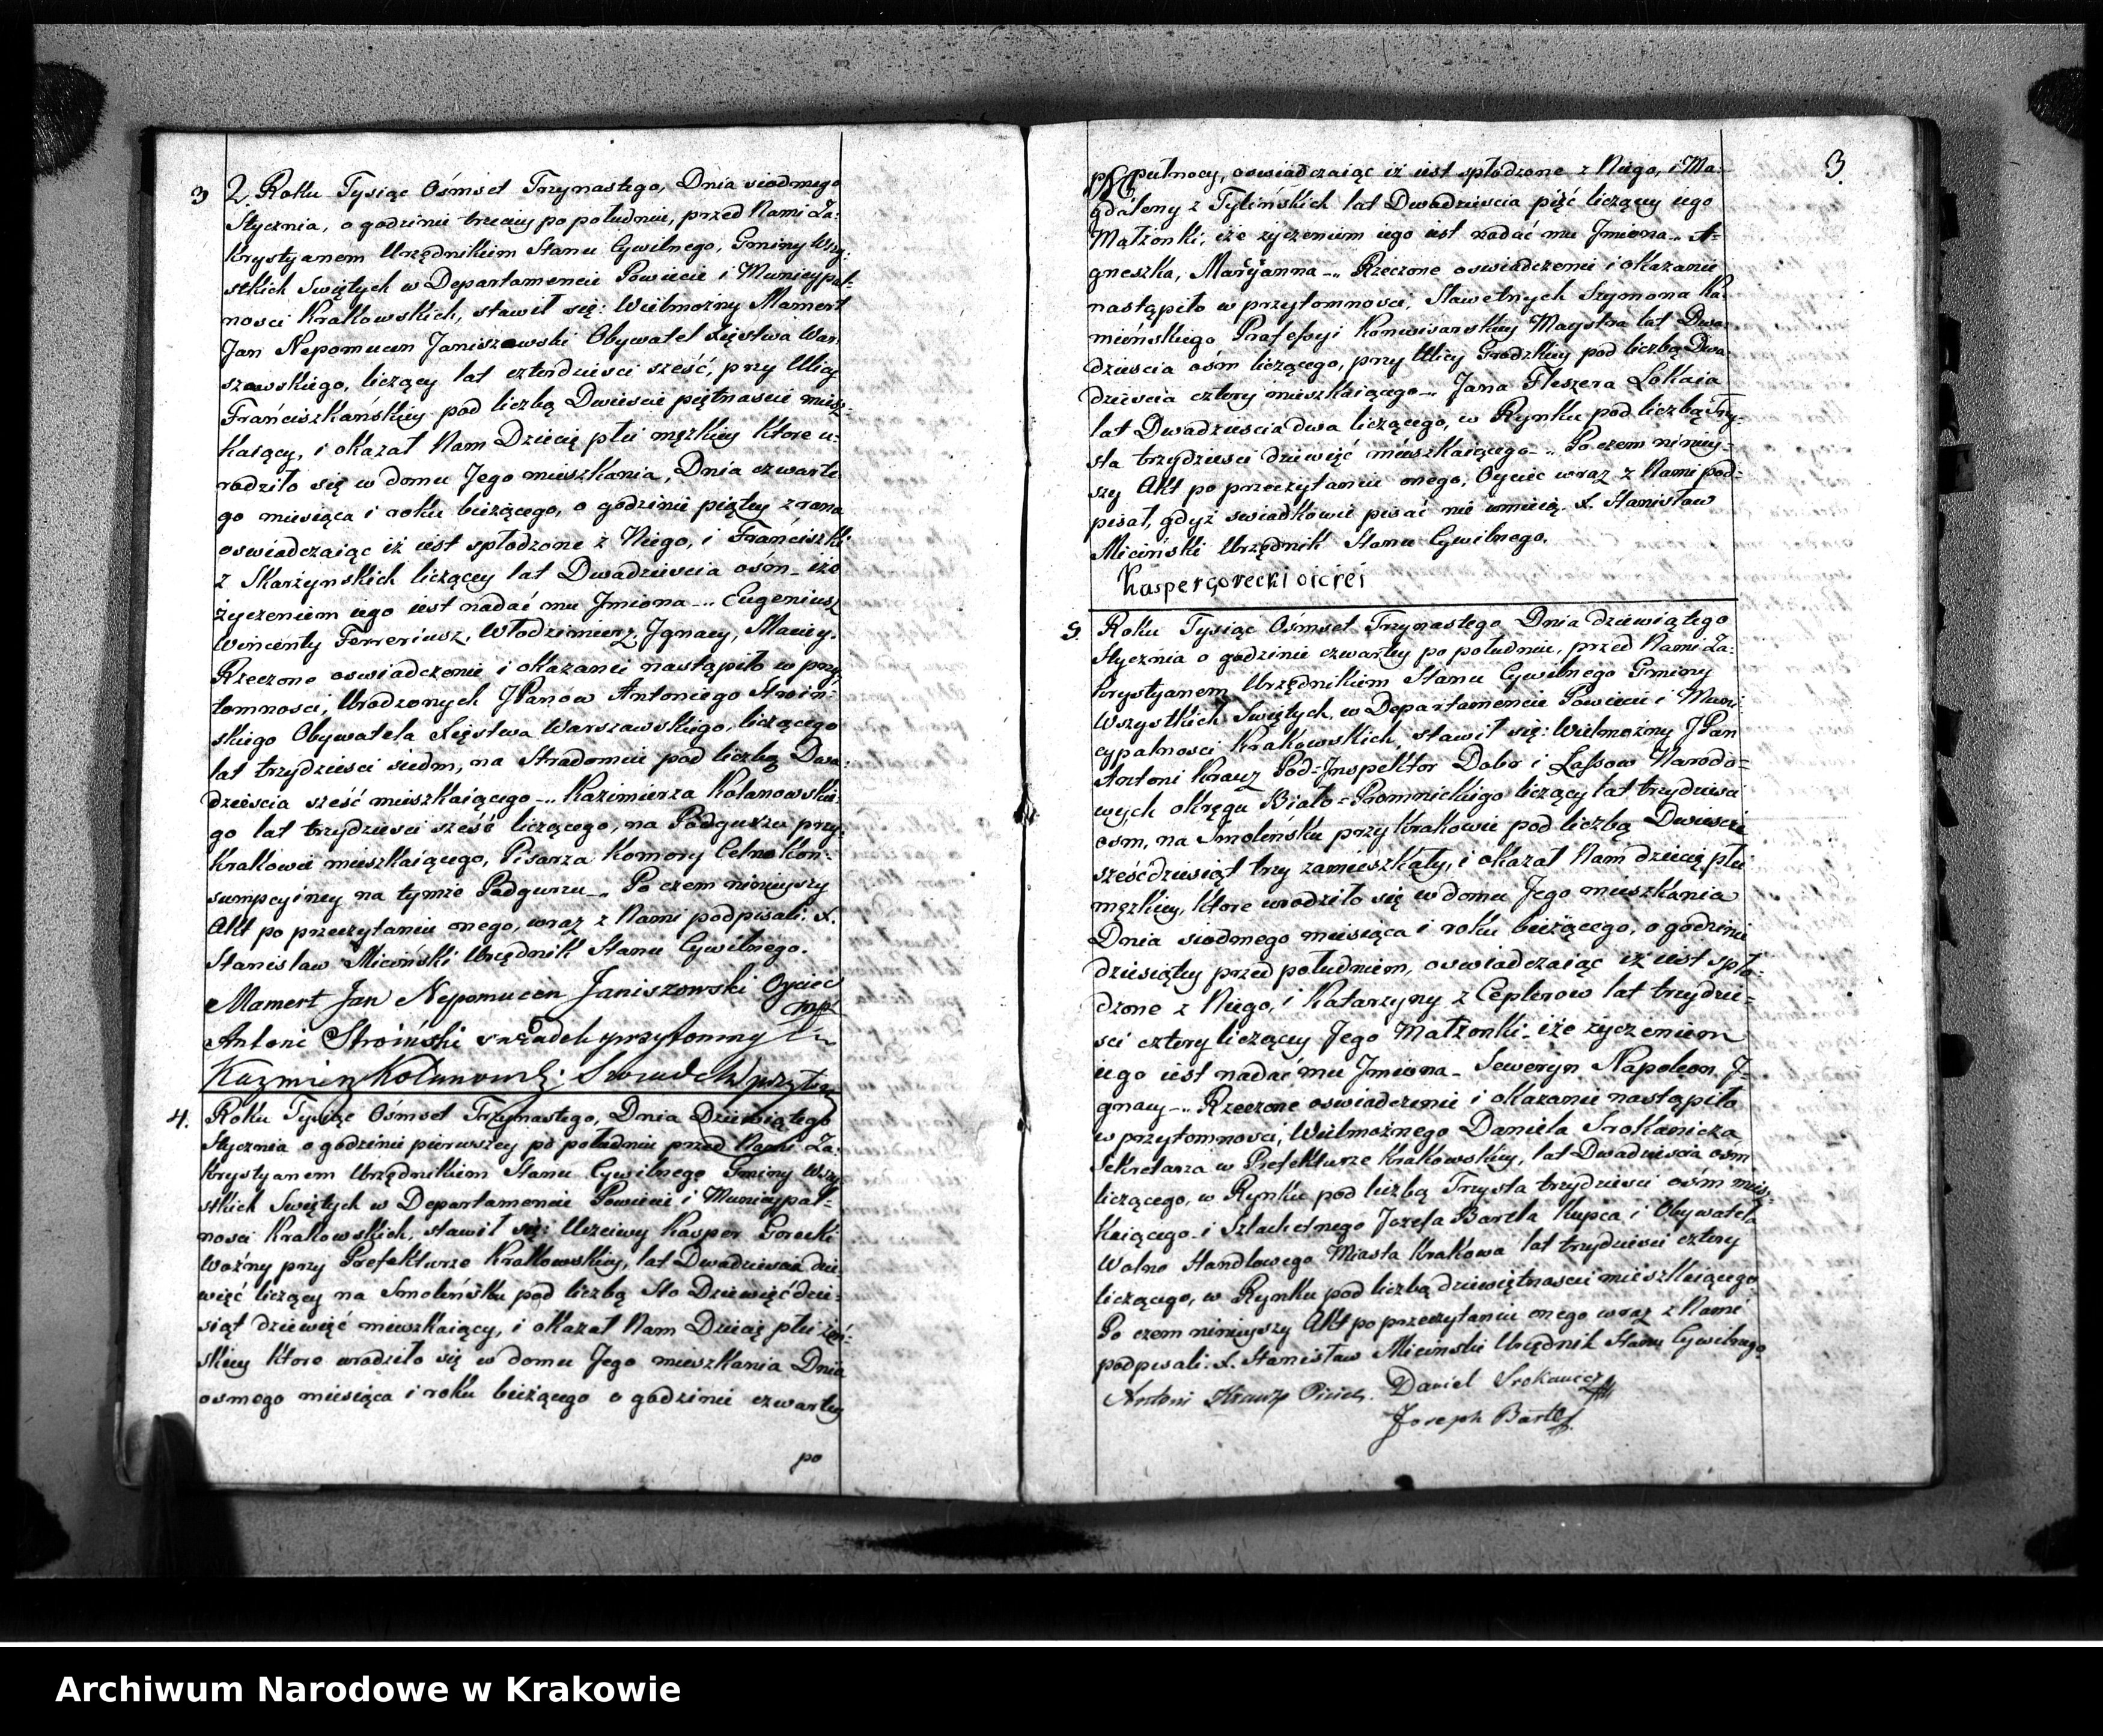 3 2. Roku Tysiąc Ośmset Trzynastego, Dnia siodmego
Stycznia, o godzinie trzeciey po południu, przed Nami Za-
krystyanem Urzędnikiem Stanu Cywilnego, Gminy Wszy-
stkich Swiętych w Departamencie Powiecie i Municypal-
nosci Krakowskich, stawił się: Wielmożny Mamert
Jan Nepomucen Janiszowski Obywatel Xięstwa War-
szawskiego, liczący lat czterdziesci sześć, przy Ulicy
Franciszkańskiey pod liczbą Dwieście piętnascie miesz-
kaiący, i okazał Nam Dziecię płci męzkiey które u-
rodziło się w domu Jego mieszkania, Dnia czwarte-
go miesiąca i roku bieżącego, o godzinie piątey zrana
oswiadczaiąc iż iest spłodzone z Niego, i Franciszki
z Skarżynskich liczącey lat Dwadziescia ośm - iże
życzeniem iego iest nadać mu Jmiona -.. Eugeniusz
Wincenty Ferreriusz, Włodzimierz, Jgnacy, Maciey.
Rzeczone oswiadczenie i okazanie nastąpiło w przy-
tomnosci, Urodzonych JPanow Antoniego Stroin-
skiego Obywatela Xięstwa Warszawskiego, liczącego
lat trzydziesci siedm, na Stradomiu pod liczbą Dwa-
dzieścia sześć mieszkaiącego -.. Kazimierza Kolanowskie-
go lat trzydziesci sześć liczącego, na Podgurzu przy
Krakowie mieszkaiącego, Pisarza Komory Celno Kon-
sumpcyiney na tymże Podgurzu -.. Po czem ninieyszy
Akt po przeczytaniu onego, wraz z Nami podpisali. X.
Stanislaw Miciński Urzędnik Stanu Cywilnego.
Mamert Jan Nepomucen Janiszowski Oyciec
mp
Antoni Stroiński swiadek przytomny
Kazmierz Kolanowski Swiadek przytom
4. Roku Tysiąc Ośmset Trzynastego, Dnia Dziewiątego
Stycznia o godzinie pierwszey po południu przed Nami Za-
krystyanem Urzędnikiem Stanu Cywilnego Gminy Wszy-
stkich Swiętych w Departamencie Powiecie i Municypal-
nosci Krakowskich, stawił się: Uczciwy Kasper Gorecki
Woźny przy Prefekturze Krakowskiey, lat Dwadziescia dzie-
więć liczący na Smoleńsku pod liczbą Sto Dziewięćdzie-
siąt dziewięć mieszkaiący, i okazał Nam Dziecię płci żeń-
skiey które urodziło się w domu Jego mieszkania Dnia
osmego miesiąca i roku bieżącego o godzinie czwartey
po
3.
po pułnocy, oswiadczaiąc iż iest spłodzone z Niego, i Ma-
gdaleny z Tylińskich lat Dwadziescia pięć liczącey iego
Małżonki; iże życzeniem iego iest nadać mu Jmiona -.. A-
gneszka, Maryanna -.. Rzeczone oswiadczenie i okazanie
nastąpiło w przytomnosci, Sławetnych Szymona Ka-
mieńskiego Professyi Konwisarskiey Maystra lat Dwa-
dziescia ośm liczącego, przy Ulicy Grodzkiey pod liczbą Dwa-
dzieścia cztery mieszkaiącego -.. Jana Fleszera Lokaia
lat Dwadziescia dwa liczącego, w Rynku pod liczbą Trzy-
sta trzydziesci dziewięć mieszkaiącego -.. Po czem niniey-
szy Akt po przeczytaniu onego, Oyciec wraz z Nami pod-
pisał, gdyż swiadkowie pisać nie umieią. X. Stanisław
Miciński Urzędnik Stanu Cywilnego.
Kasper gorecki oiciei
5. Roku Tysiąc Ośmset Trzynastego Dnia dziewiątego
Stycznia o godzinie czwartey po południu, przed Nami Za-
krystyanem Urzędnikiem Stanu Cywilnego Gminy
Wszystkich Swiętych, w Departamencie Powiecie i Muni-
cypalnosci Krakowskich, stawił się: Wielmożny JPan
Antoni Krauz Pod-Jnspektor Dobr i Lassow Narodo-
wych okręgu Biało-Promnickiego liczący lat trzydziesci
osm, na Smoleńsku przy Krakowie pod liczbą Dwiescie
sześćdziesiąt trzy zamieszkały, i okazał Nam dziecię płci
męzkiey, które urodziło się w domu Jego mieszkania
Dnia siodmego miesiąca i roku bieżącego, o godzinie
dziesiątey przed południem, oswiadczaiąc iż iest spło-
dzone z Niego, i Katarzyny z Ceplerow lat trzydzie-
sci cztery liczącey Jego Małżonki - iże życzeniem
iego iest nadać mu Jmiona - Seweryn Napoleon J-
gnacy -.. Rzeczone oswiadczenie i okazanie nastąpiło
w przytomnosci, Wielmożnego Daniela Srokanicza
Sekretarza w Prefekturze Krakowskiey, lat Dwadziescia ośm
liczącego, w Rynku pod liczbą Trzysta trzydziesci ośm miesz-
kaiącego - i Szlachetnego Jozefa Bartla Kupca i Obywatela
Wolno Handlowego Miasta Krakowa lat trzydziesci cztery
liczącego, w Rynku pod liczbą dziewiętnascie mieszkaiącego
Po czem ninieyszy Akt po przeczytaniu onego wraz z Nami
podpisali. X. Stanisław Miciński Urzędnik Stanu Cywilnego
Antoni Krauz Oiciec. Daniel Srokanicz
Joseph Bartl
Archiwum Narodowe w Krakowie